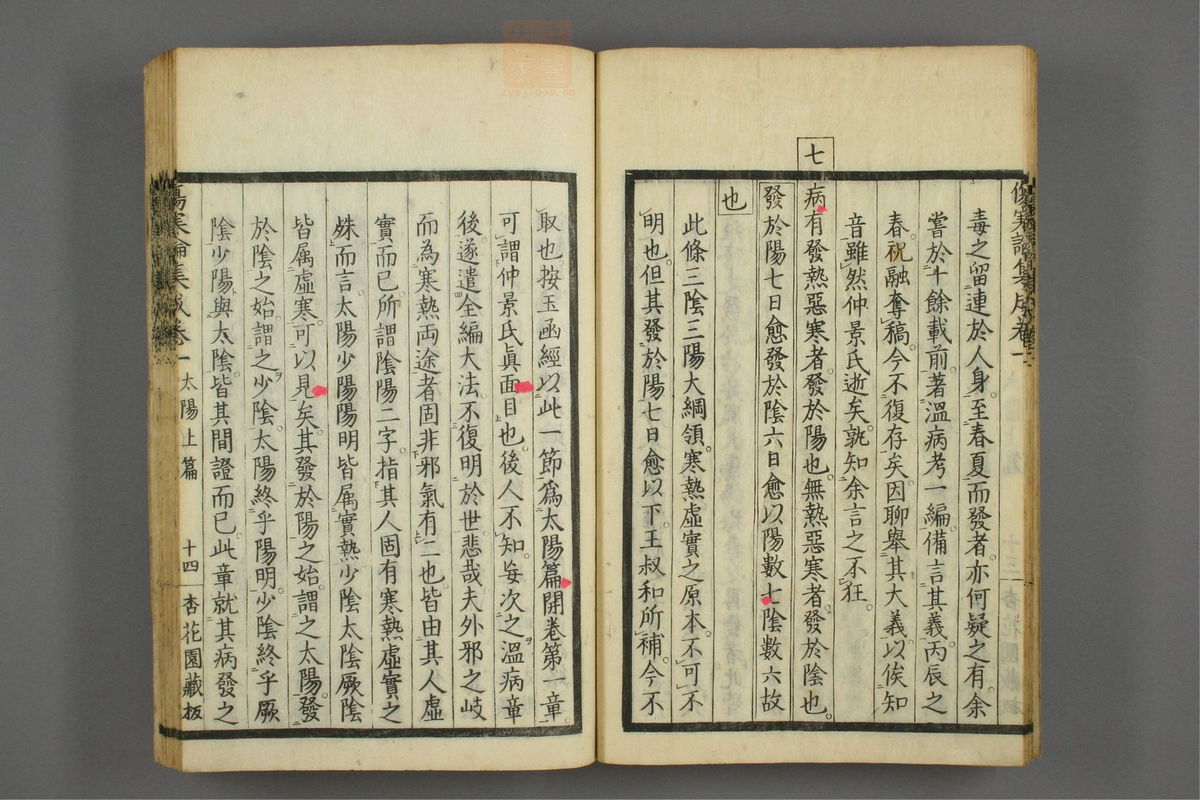 毒之留連於人身至春夏而發者亦何疑之有余
嘗於十餘載前著溫病考一編備言其義丙辰之
春祝融奪稿今不復存矣因聊舉其大義以俟知
音雖然仲景氏逝矣孰知余言之不狂
七
病有發熱惡寒者發於陽也無熱惡寒者發於陰也
發於陽七日愈發於陰六日愈以陽數七陰數六故
也
此條三陰三陽大綱領寒熱虛實之原本不可不
明也但其發於陽七日愈以下王叔和所補今不
取也按玉函經以此一節爲太陽篇開卷第一章
可謂仲景氏眞面目也後人不知妄次之溫病章
後遂遣全編大法不復明於世悲哉夫外邪之岐
而為寒熱両途者固非邪氣有二也皆由其人虛
實而已所謂陰陽二字指其人固有寒熱虛實之
殊而言太陽少陽陽明皆属實熱少陰太陰厥陰
皆属虛寒可以見矣其發於陽之始謂之太陽發
於陰之始謂之少陰太陽終乎陽明少陰終乎厥
陰少陽與太陰皆其間證而已此章就其病發之
傷寒論集成卷一 太陽上篇 十四 杏花園藏板